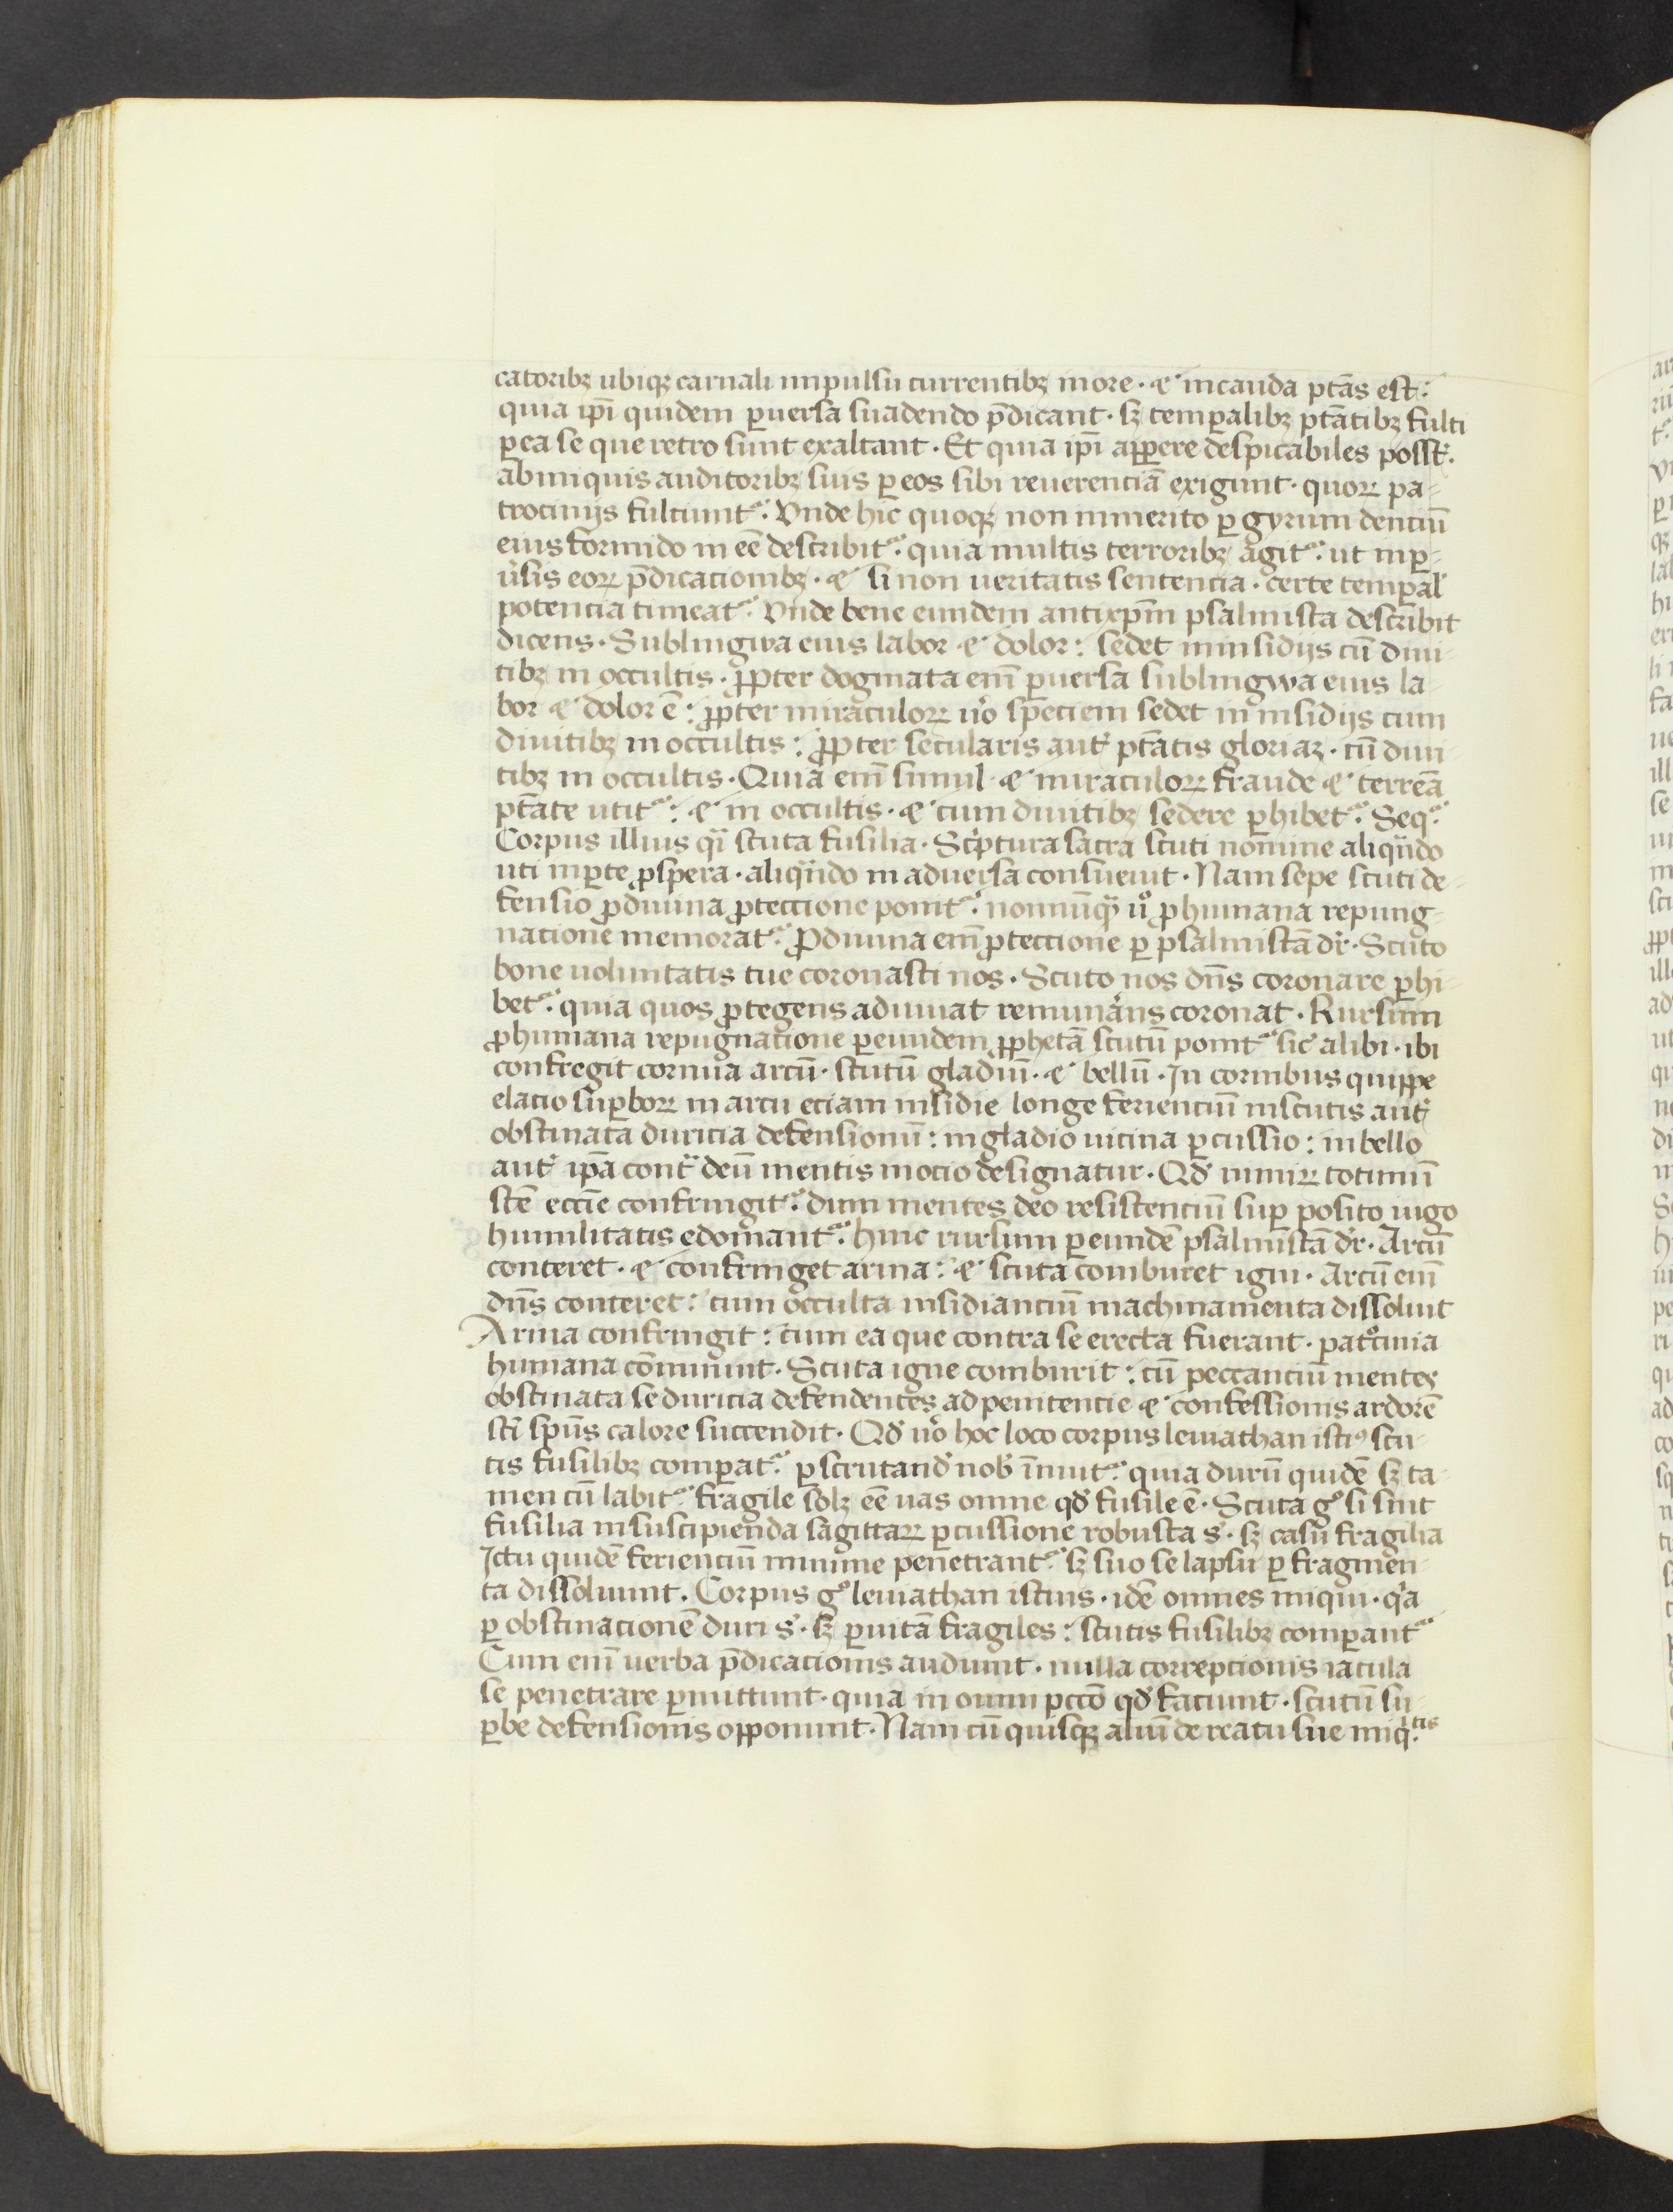 catoribꝫ ubiqꝫ carnali impulsu currentibꝫ more · ⁊ in cauda ptās est :
quia ip̄i quidem ꝑuersa suadendo p̄dicant · sꝫ temꝑalibꝫ ptātibꝫ fulti
ꝑ ea se que retro sunt exaltant · Et quia ip̄i apꝑere despicabiles possēt ·
ab iniquis auditoribꝫ suis ꝑ eos sibi reuerenciā exigunt · quoꝝ pa-
trocinijs fulciunt᷑ · Vnde hic quoqꝫ non inmerito ꝑ gyrum denciū
eius formido in eē describit᷑ · quia multis terroribꝫ agit᷑ · ut in ꝑ-
u̓sis eoꝝ p̄dicacionibꝫ · ⁊ si non ueritatis sentencia · certe temꝑal̓
potencia timeat᷑ · Vnde bene eundem antixp̄m psalmista describit
dicens · Sub lingwa eius labor ⁊ dolor : sedet in insidijs cū diui-
tibꝫ in occultis · ꝓpter dogmata em̄ ꝑuersa sub lingwa eius la-
bor ⁊ dolor ē : ꝓpter miraculoꝝ u̓o speciem sedet in insidijs cum
diuitibꝫ in occultis : ꝓpter secularis aut̄ ptātis gloriaꝫ · cū diui-
tibꝫ in occultis · Quia em̄ simul ⁊ miraculoꝝ fraude ⁊ terrenā
ptāte utit᷑ : ⁊ in occultis · ⁊ cum diuitibꝫ sedere ꝑhibet᷑ · Seq᷑ ·
Corpus illius qͣi scuta fusilia · Sc̓ptura sacra scuti nomine aliqͣndo
uti in ꝑte ꝓspera · aliqͣndo in aduersa consueuit · Nam sepe scuti de-
fensio ꝓ diuina ꝓteccione ponit᷑ · nonnūqͣ uͦ ꝓ humana repung-
nacione memorat᷑ · Ꝓ diuina em̄ ꝓteccione ꝑ psalmistā dr̄ · Scuto
bone uoluntatis tue coronasti nos · Scuto nos dn̄s coronare ꝑhi-
bet᷑ · quia quos ꝓtegens adiuuat remun̓ans coronat · Rursum
ꝓ humana repugnatione ꝑ eundem ꝓphetā scutū ponit᷑ sic̄ alibi · ibi
confregit cornua arcū · scutū gladiū · ⁊ bellū · In cornibus quippe
elacio suꝑboꝝ in arcu eciam insidie longe ferienciū in scutis aut̄
obstinata duricia defensionū : in gladio uicina ꝑcussio : in bello
aut̄ ip̄a contͣ deū mentis mocio designatur · Qd̓ nimiꝝ totum ī
sc̄e eccīe confringit᷑ · dum mentes deo resistenciū suꝑ posito iugo
humilitatis edomant᷑ · hinc rursum ꝑ eundē psalmistā dr̄ · Arcū
conteret · ⁊ confringet arma : ⁊ scuta comburet igni · Arcū em̄
dn̄s conteret : cum occulta insidianciū machinamenta dissoluit
Arma confringit : cum ea que contra se erecta fuerant · patͦcinia
humana cōminuit · Scuta igne comburit : cū peccanciū mentes
obstinata se duricia defendentes ad penitencie ⁊ confessionis ardorē
sc̄i sp̄us calore succendit · Qd̓ u̓o hoc loco corpus leuiathan istiꝰ scu-
tis fusilibꝫ comꝑat᷑ ꝑscrutand̓ nob̓ īnuit᷑ · quia durū quidē sꝫ ta-
men cū labit᷑ fragile solꝫ eē uas omne qd̓ fusile ē · Scuta gͦ si sint
fusilia in suscipienda sagittaꝝ ꝑcussione robusta s̓ · sꝫ casu fragilia
Ictu quidē ferienciū minime penetrant᷑ sꝫ suo se lapsu ꝑ fragmen-
ta dissoluunt · Corpus gͦ leuiathan istius · idē omnes iniqui · q̓a
ꝑ obstinacionē duri s̓ · sꝫ ꝑ uitā fragiles : scutis fusilibꝫ comꝑant᷑
Cum em̄ uerba p̄dicacionis audiunt · nulla correpcionis iacula
se penetrare ꝑmittunt · quia in omni pccō qd̓ faciunt · scutū su-
ꝑbe defensionis opponunt · Nam cū quisqꝫ aliū de reatu sue iniq̓tis